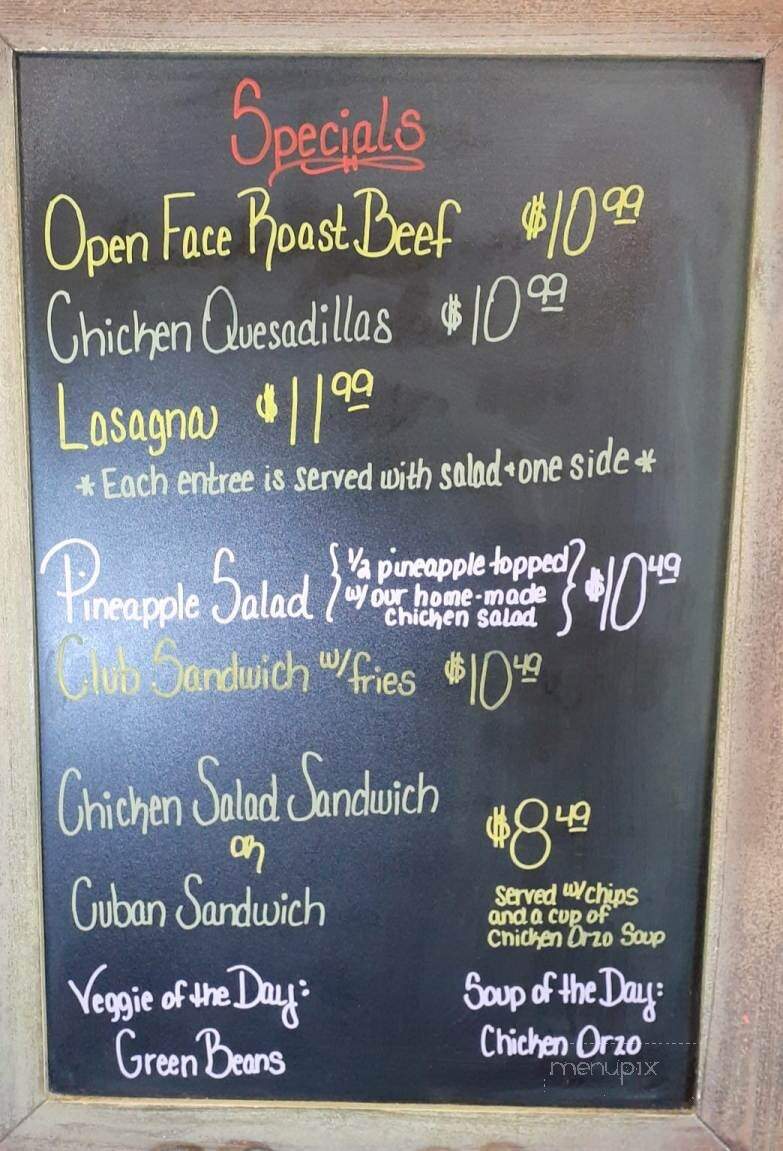 Specials
Open Face Roast Beef $10.99
Chicken Quesadillas $10.99
Lasagna $11.99
* Each entree is served with salad + one side *
Pineapple Salad { 1/2 pineapple topped
w/ our home-made
chicken salad } $10.49
Club Sandwich w/ fries $10.49
Chicken Salad Sandwich
or
Cuban Sandwich
$8.49
Served w/ chips
and a cup of
Chicken Orzo Soup
Veggie of the Day:
Green Beans
Soup of the Day:
Chicken Orzo
menupix